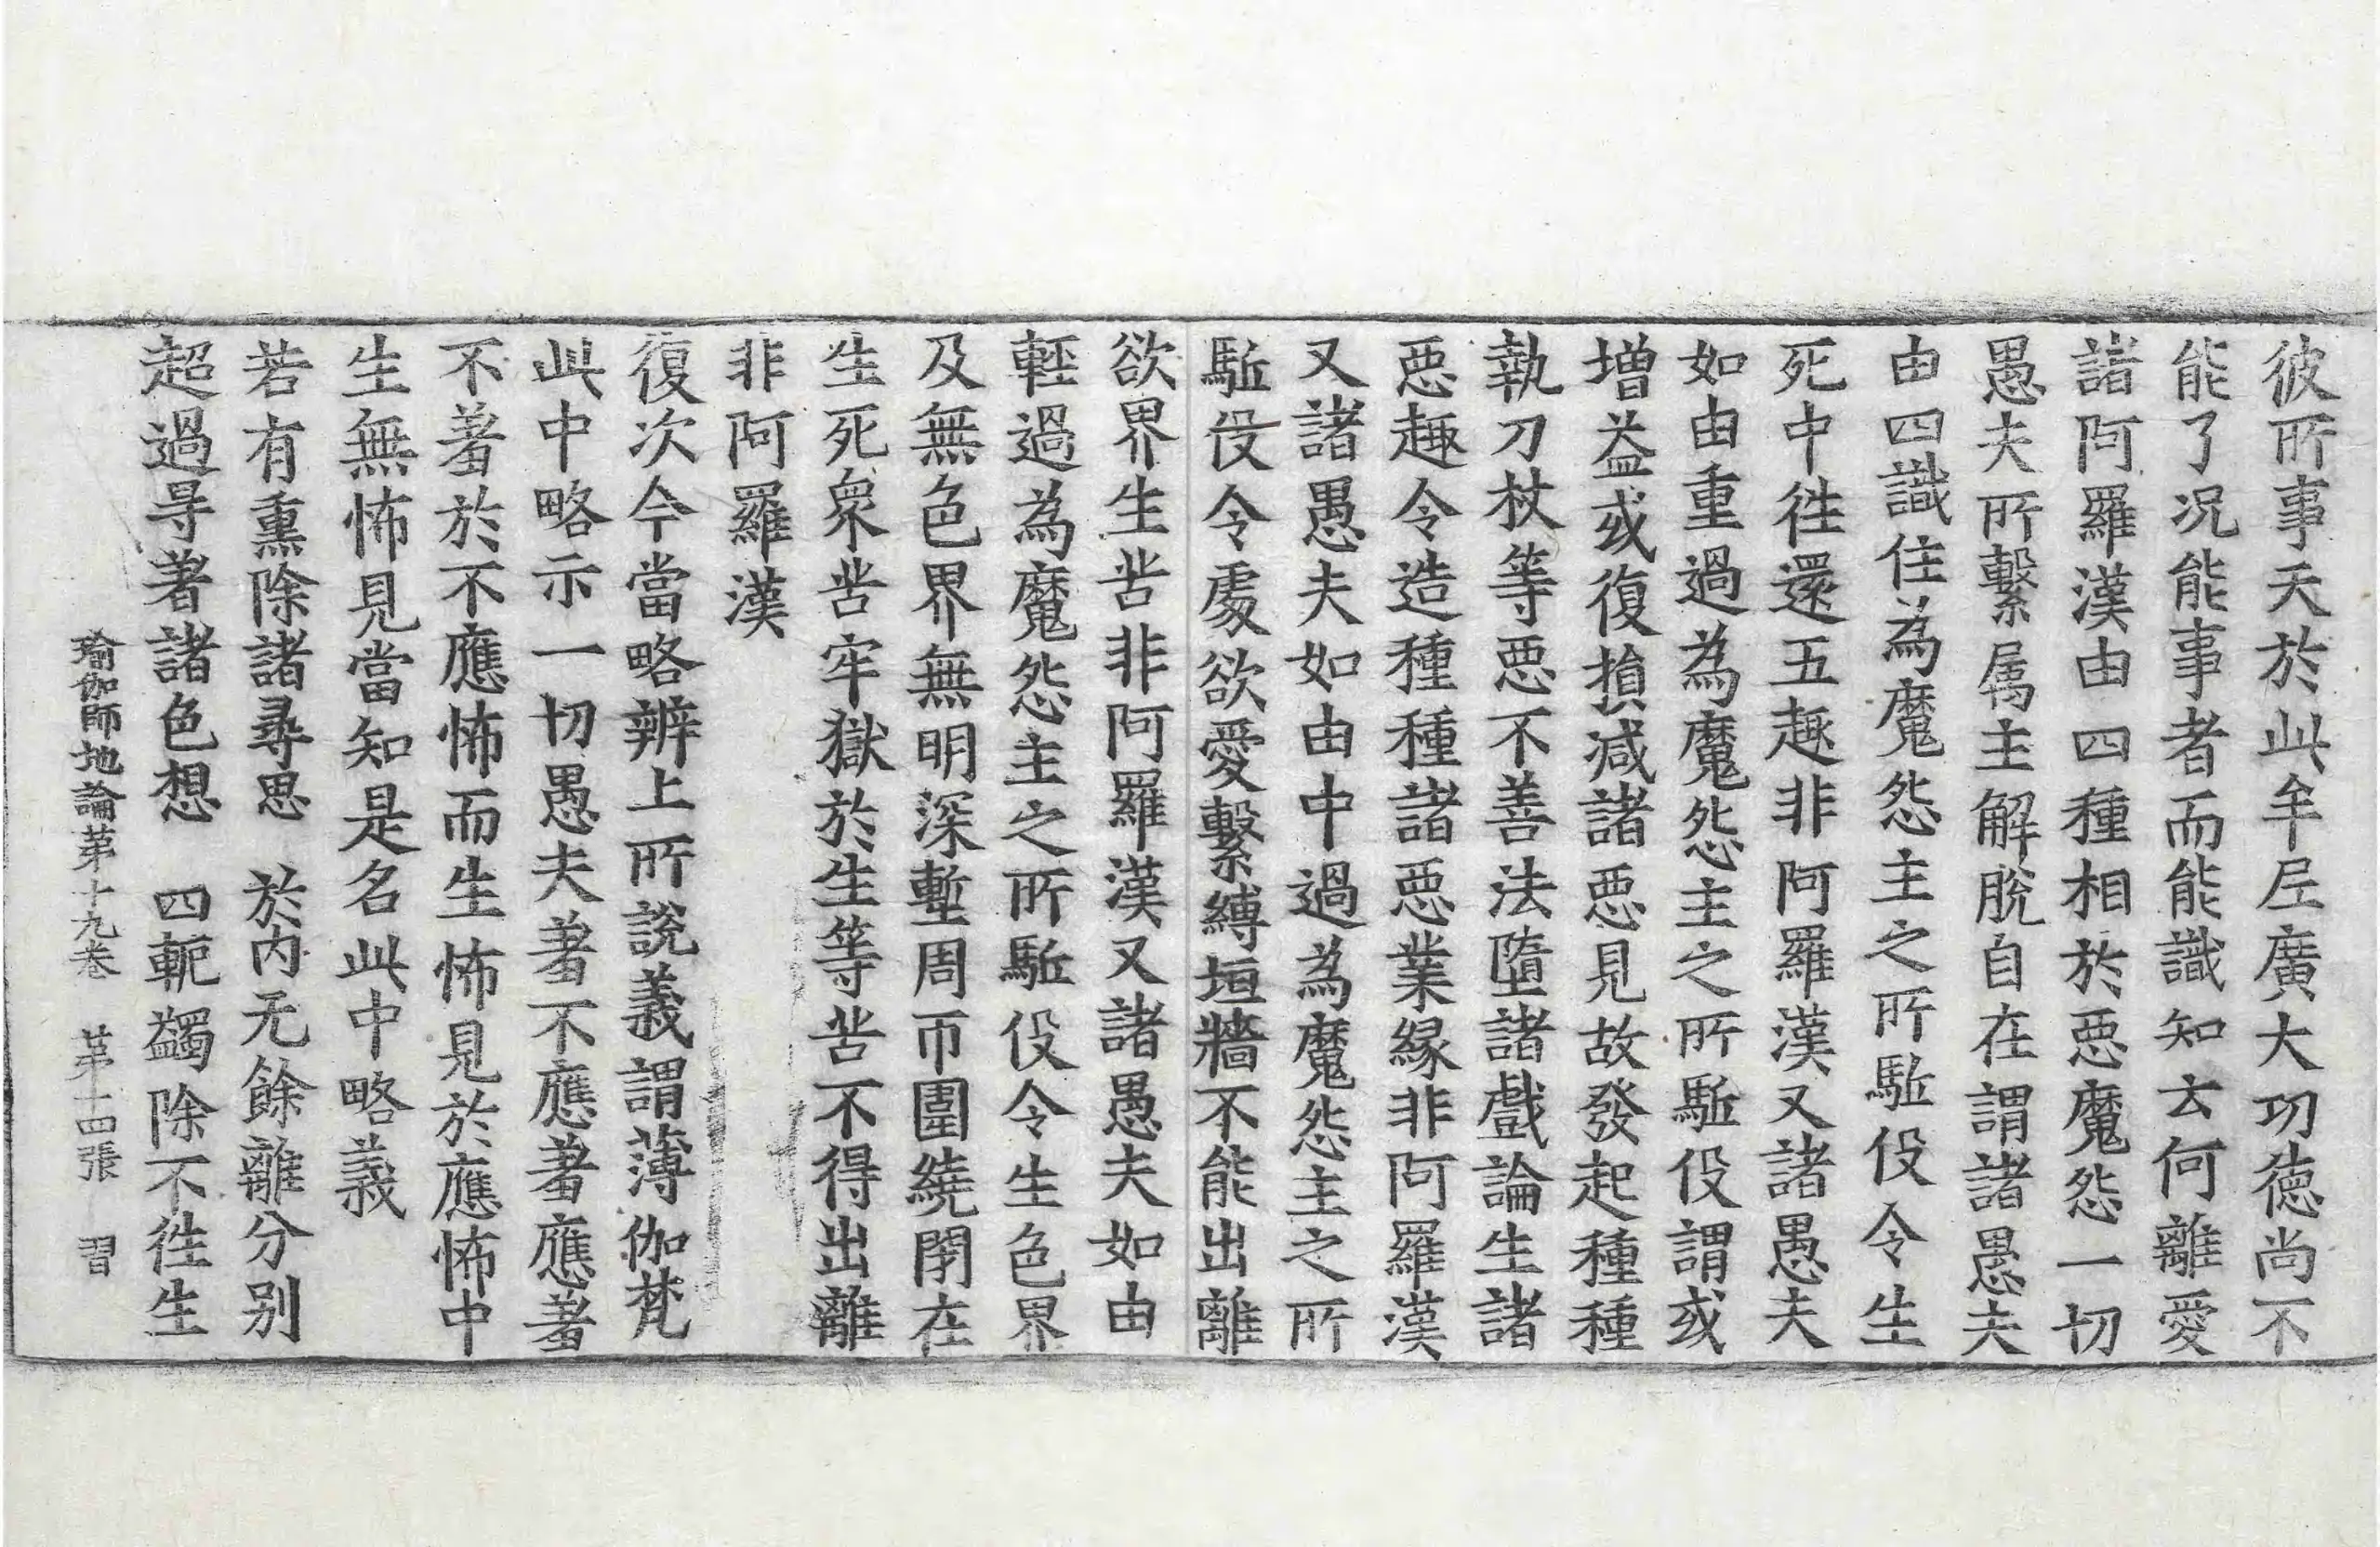 彼所事天於此牟尼廣大功德尚不
能了况能事者而能識知去何離愛
諸阿羅漢由四種相於惡魔怨一切
愚夫所繫属主解脫自在謂諸愚夫
由四識住為魔怨主之所駈伇令生
死中徃還五趣非阿羅漢又諸愚夫
如由重過為魔怨主之所駈伇謂或
增益或復損减諸惡見故發起種種
執刀杖等惡不善法墮諸戲論生諸
惡趣令造種種諸惡業緣非阿羅漢
又諸愚夫如由中過為魔怨主之所
駈伇令處欲愛繫縛垣牆不能出離
欲界生苦非阿羅漢又諸愚夫如由
輕過為魔怨主之所駈伇令生色界
及無色界無明深塹周帀圍繞閉在
生死衆苦牢獄於生等苦不得出離
非阿羅漢
復次今當略辨上所說義謂薄伽梵
此中略示一切愚夫著不應著應著
不著於不應怖而生怖見於應怖中
生無怖見當知是名此中略義
若有熏除諸尋思　於內无餘離分别
超過㝵著諸色想　四軛蠲除不徃生
瑜伽師地論苐十九卷　苐十四張　習